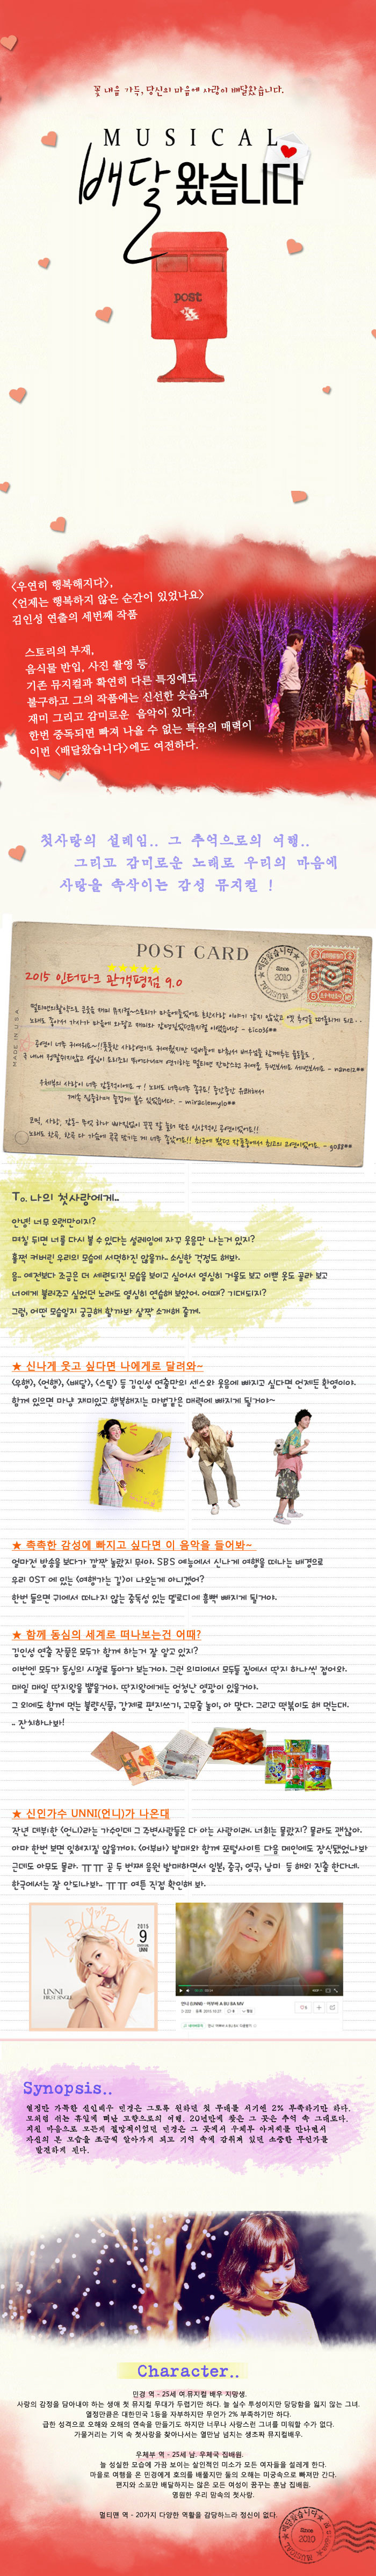 꽃 내음 가득, 당신의 마음에 사랑이 배달왔습니다.
MUSICAL
배달왔습니다
post
<우연히 행복해지다>,
<언제는 행복하지 않은 순간이 있었나요>
김인성 연출의 세번째 작품
스토리의 부재,
음식물 반입, 사진 촬영 등
기존 뮤지컬과 확연히 다른 특징에도
불구하고 그의 작품에는 신선한 웃음과
재미 그리고 감미로운 음악이 있다.
한번 중독되면 빠져 나올 수 없는 특유의 매력이
이번 <배달왔습니다>에도 여전하다.
첫사랑의 설레임.. 그 추억으로의 여행..
그리고 감미로운 노래로 우리의 마음에
사랑을 속삭이는 감성 뮤지컬 !
POST CARD
★★★★★
2015 인터파크 관객평점 9.0
Since
2010
MUSICAL
MADE IN U.S.A
- tico36**
- nane12**
- miraclemylo**
- go88**
To. 나의 첫사랑에게..
안녕! 너무 오랫만이지?
며칠 뒤면 너를 다시 볼 수 있다는 설레임에 자꾸 웃음만 나는거 있지?
훌쩍 커버린 우리의 모습에 서먹하진 않을까.. 소심한 걱정도 해봐.
음.. 예전보다 조금은 더 세련되진 모습을 보이고 싶어서 열심히 거울도 보고 이쁜 옷도 골라 보고
너에게 불러주고 싶었던 노래도 열심히 연습해 보았어. 어때? 기대되지?
그럼, 어떤 모습일지 궁금해 할까봐 살짝 소개해 줄께.
★ 신나게 웃고 싶다면 나에게로 달려와~
<우행>, <언행>, <배달>, <스틸> 등 김인성 연출만의 센스와 웃음에 빠지고 싶다면 언제든 환영이야.
함께 있으면 마냥 재미있고 행복해지는 마법같은 매력에 빠지게 될거야~
★ 촉촉한 감성에 빠지고 싶다면 이 음악을 들어봐~
얼마전 방송을 보다가 깜짝 놀랐지 뭐야. SBS 예능에서 신나게 여행을 떠나는 배경으로
우리 OST 에 있는 <여행가는 길>이 나오는게 아니겠어?
한번 들으면 귀에서 떠나지 않는 중독성 있는 멜로디에 흠뻑 빠지게 될거야.
★ 함께 동심의 세계로 떠나보는건 어때?
김인성 연출 작품은 모두가 함께 하는거 잘 알고 있지?
이번엔 모두가 동심의 시절로 돌아가 보는거야. 그런 의미에서 모두들 집에서 딱지 하나씩 접어와.
매일 매일 딱지왕을 뽑을거야. 딱지왕에게는 엄청난 영광이 있을거야.
그 외에도 함께 먹는 불량식품, 강제로 편지쓰기, 고무줄 놀이, 아 맞다. 그리고 떡볶이도 해 먹는대.
.. 잔치하나봐!
★ 신인가수 UNNI(언니)가 나온대
작년 데뷔한 <언니>라는 가수인데 그 주변사람들은 다 아는 사람이래. 너희는 몰랐지? 몰라도 괜찮아.
아마 한번 보면 잊혀지질 않을거야. <어부바> 발매와 함께 포털사이트 다음 메인에도 장식됐었나봐
근데도 아무도 몰라. ㅠㅠ 곧 두 번째 음원 발매하면서 일본, 중국, 영국, 남미 등 해외 진출 한다네.
한국에서는 잘 안되나봐.. ㅠㅠ 여튼 직접 확인해 봐.
A BU BA
2015
9
UNNI
UNNI
FIRST SINGLE
언니 (UNNI) - 어부바 A BU BA MV
Synopsis..
열정만 가득한 신인배우 민경은 그토록 원하던 첫 무대를 서기엔 2% 부족하기만 하다.
모처럼 쉬는 휴일에 떠난 고향으로의 여행. 20년만에 찾은 그 곳은 추억 속 그대로다.
지친 마음으로 모든게 절망적이었던 민경은 그 곳에서 우체부 아저씨를 만나면서
자신의 본 모습을 조금씩 알아가게 되고 기억 속에 감춰져 있던 소중한 무언가를
발견하게 된다.
Character..
민경 역 - 25세 여.뮤지컬 배우 지망생.
사랑의 감정을 담아내야 하는 생애 첫 뮤지컬 무대가 두렵기만 하다. 늘 실수 투성이지만 당당함을 잃지 않는 그녀.
열정만큼은 대한민국 1등을 자부하지만 무언가 2% 부족하기만 하다.
급한 성격으로 오해와 오해의 연속을 만들기도 하지만 너무나 사랑스런 그녀를 미워할 수가 없다.
가물거리는 기억 속 첫사랑을 찾아나서는 열만남 넘치는 생초짜 뮤지컬배우.
우체부 역 - 25세 남. 우체국 집배원.
늘 성실한 모습에 가끔 보이는 살인적인 미소가 모든 여자들을 설레게 한다.
마을로 여행을 온 민경에게 호의를 배풀지만 둘의 오해는 미궁속으로 빠져만 간다.
편지와 소포만 배달하지는 않은 모든 여성이 꿈꾸는 훈남 집배원.
영원한 우리 맘속의 첫사랑.
멀티맨 역 - 20가지 다양한 역활을 감당하느라 정신이 없다.
배달왔습니다
Since
2010
MUSICAL